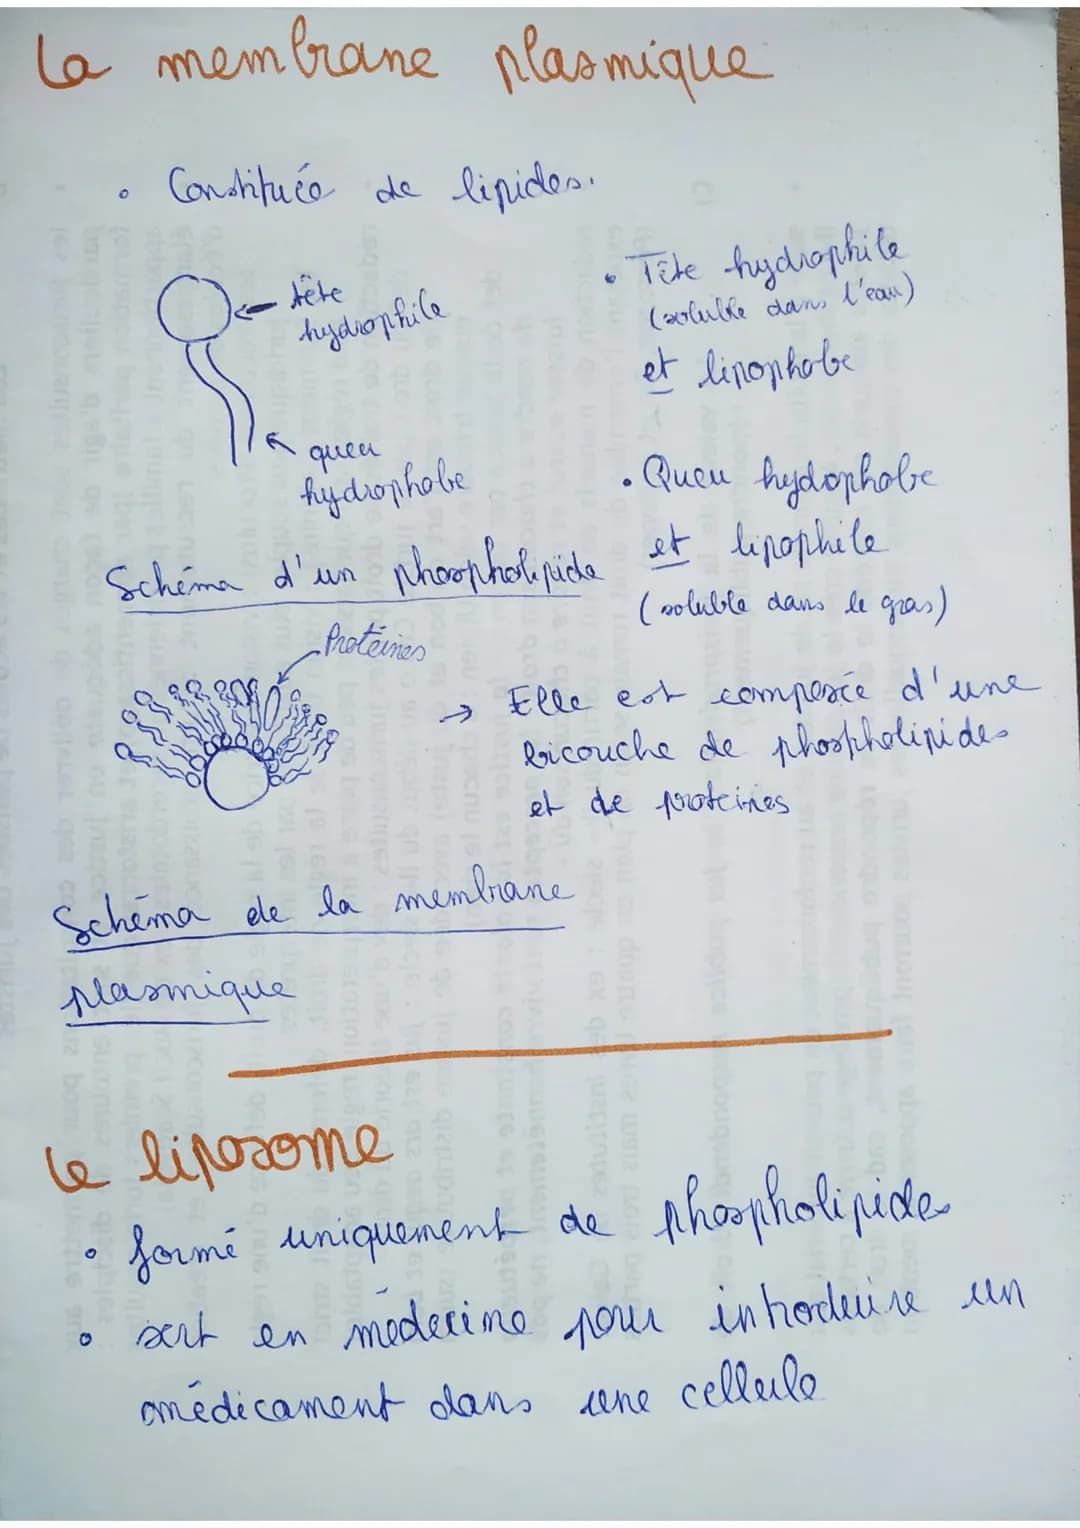 La membrane plasmique
• Constituée de lipides.
tête
hydrophile
queu
hydrophobe
Schéma d'un phospholipide
• Tête hydrophile
(soluble dans l'eau)
et lipophobe
• Queu hydophobe
et lipophile
(soluble dans le gras)
Protéines
→ Elle est composée d'une
bicouche de phospholipides
et de proteines
Schéma de la membrane
plasmique
Le liposome
• formé uniquement de phospholipides
• sert en médecine pour introduire un
médicament dans une cellule